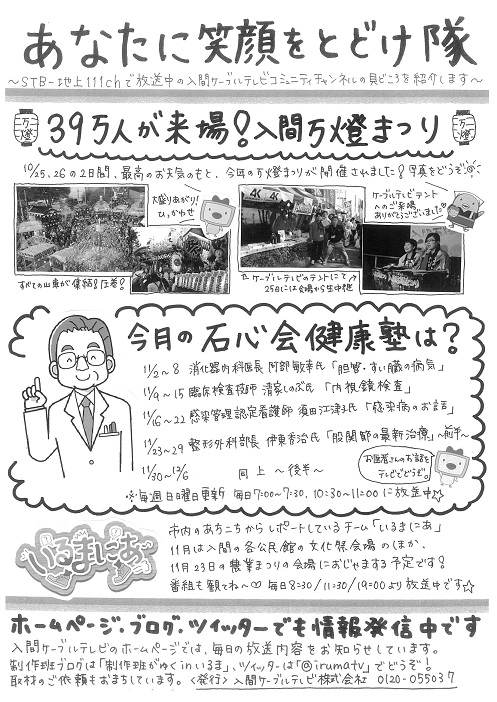 あなたに笑顔をとどけ隊
～STB-地上111chで放送中の入間ケーブルテレビコミュニティチャンネルの見どころを紹介します～
万燈
39万人が来場!入間万燈まつり
万燈
10/25、26の2日間、最高のお天気のもと、今年の万燈まつりが開催されました!写真をどうぞ
大盛りあがり!
ひっかわせ
ケーブルテレビテント
へのご来場
ありがとうございました
すべての山車が集結!圧巻!
ケーブルテレビのテントにて
25日には会場から生中継
今月の石心会健康塾は?
11/2～8 消化器内科医長 阿部敏幸氏「胆管・すい臓の病気」
11/9～15 臨床検査技師 清家しのぶ氏「内視鏡検査」
11/16～22 感染管理認定看護師 須田江津子氏「感染病のお話」
11/23～29 整形外科部長 伊東秀治氏「股関節の最新治療」～前半～
11/30～12/6 同上 ～後半～
お医者さんのお話を
テレビでどうぞ。
※毎週日曜日更新 毎日7:00～7:30、10:30～11:00に放送中☆
いるまにあ
市内のあちこちからレポートしているチーム「いるまにあ」
11月は入間の各公民館の文化祭会場のほか、
11月23日の農業まつりの会場におじゃまする予定です!
番組も観てね～♡ 毎日8:30/11:30/19:00より放送中です☆
ホームページ、ブログ、ツイッターでも情報発信中です
入間ケーブルテレビのホームページでは、毎日の放送内容をお知らせしています。
制作班ブログは「制作班がゆくinいるま」、ツイッターは「@irumatv」でどうぞ!
取材のご依頼もおまちしています。<発行>入間ケーブルテレビ株式会社 0120-055037